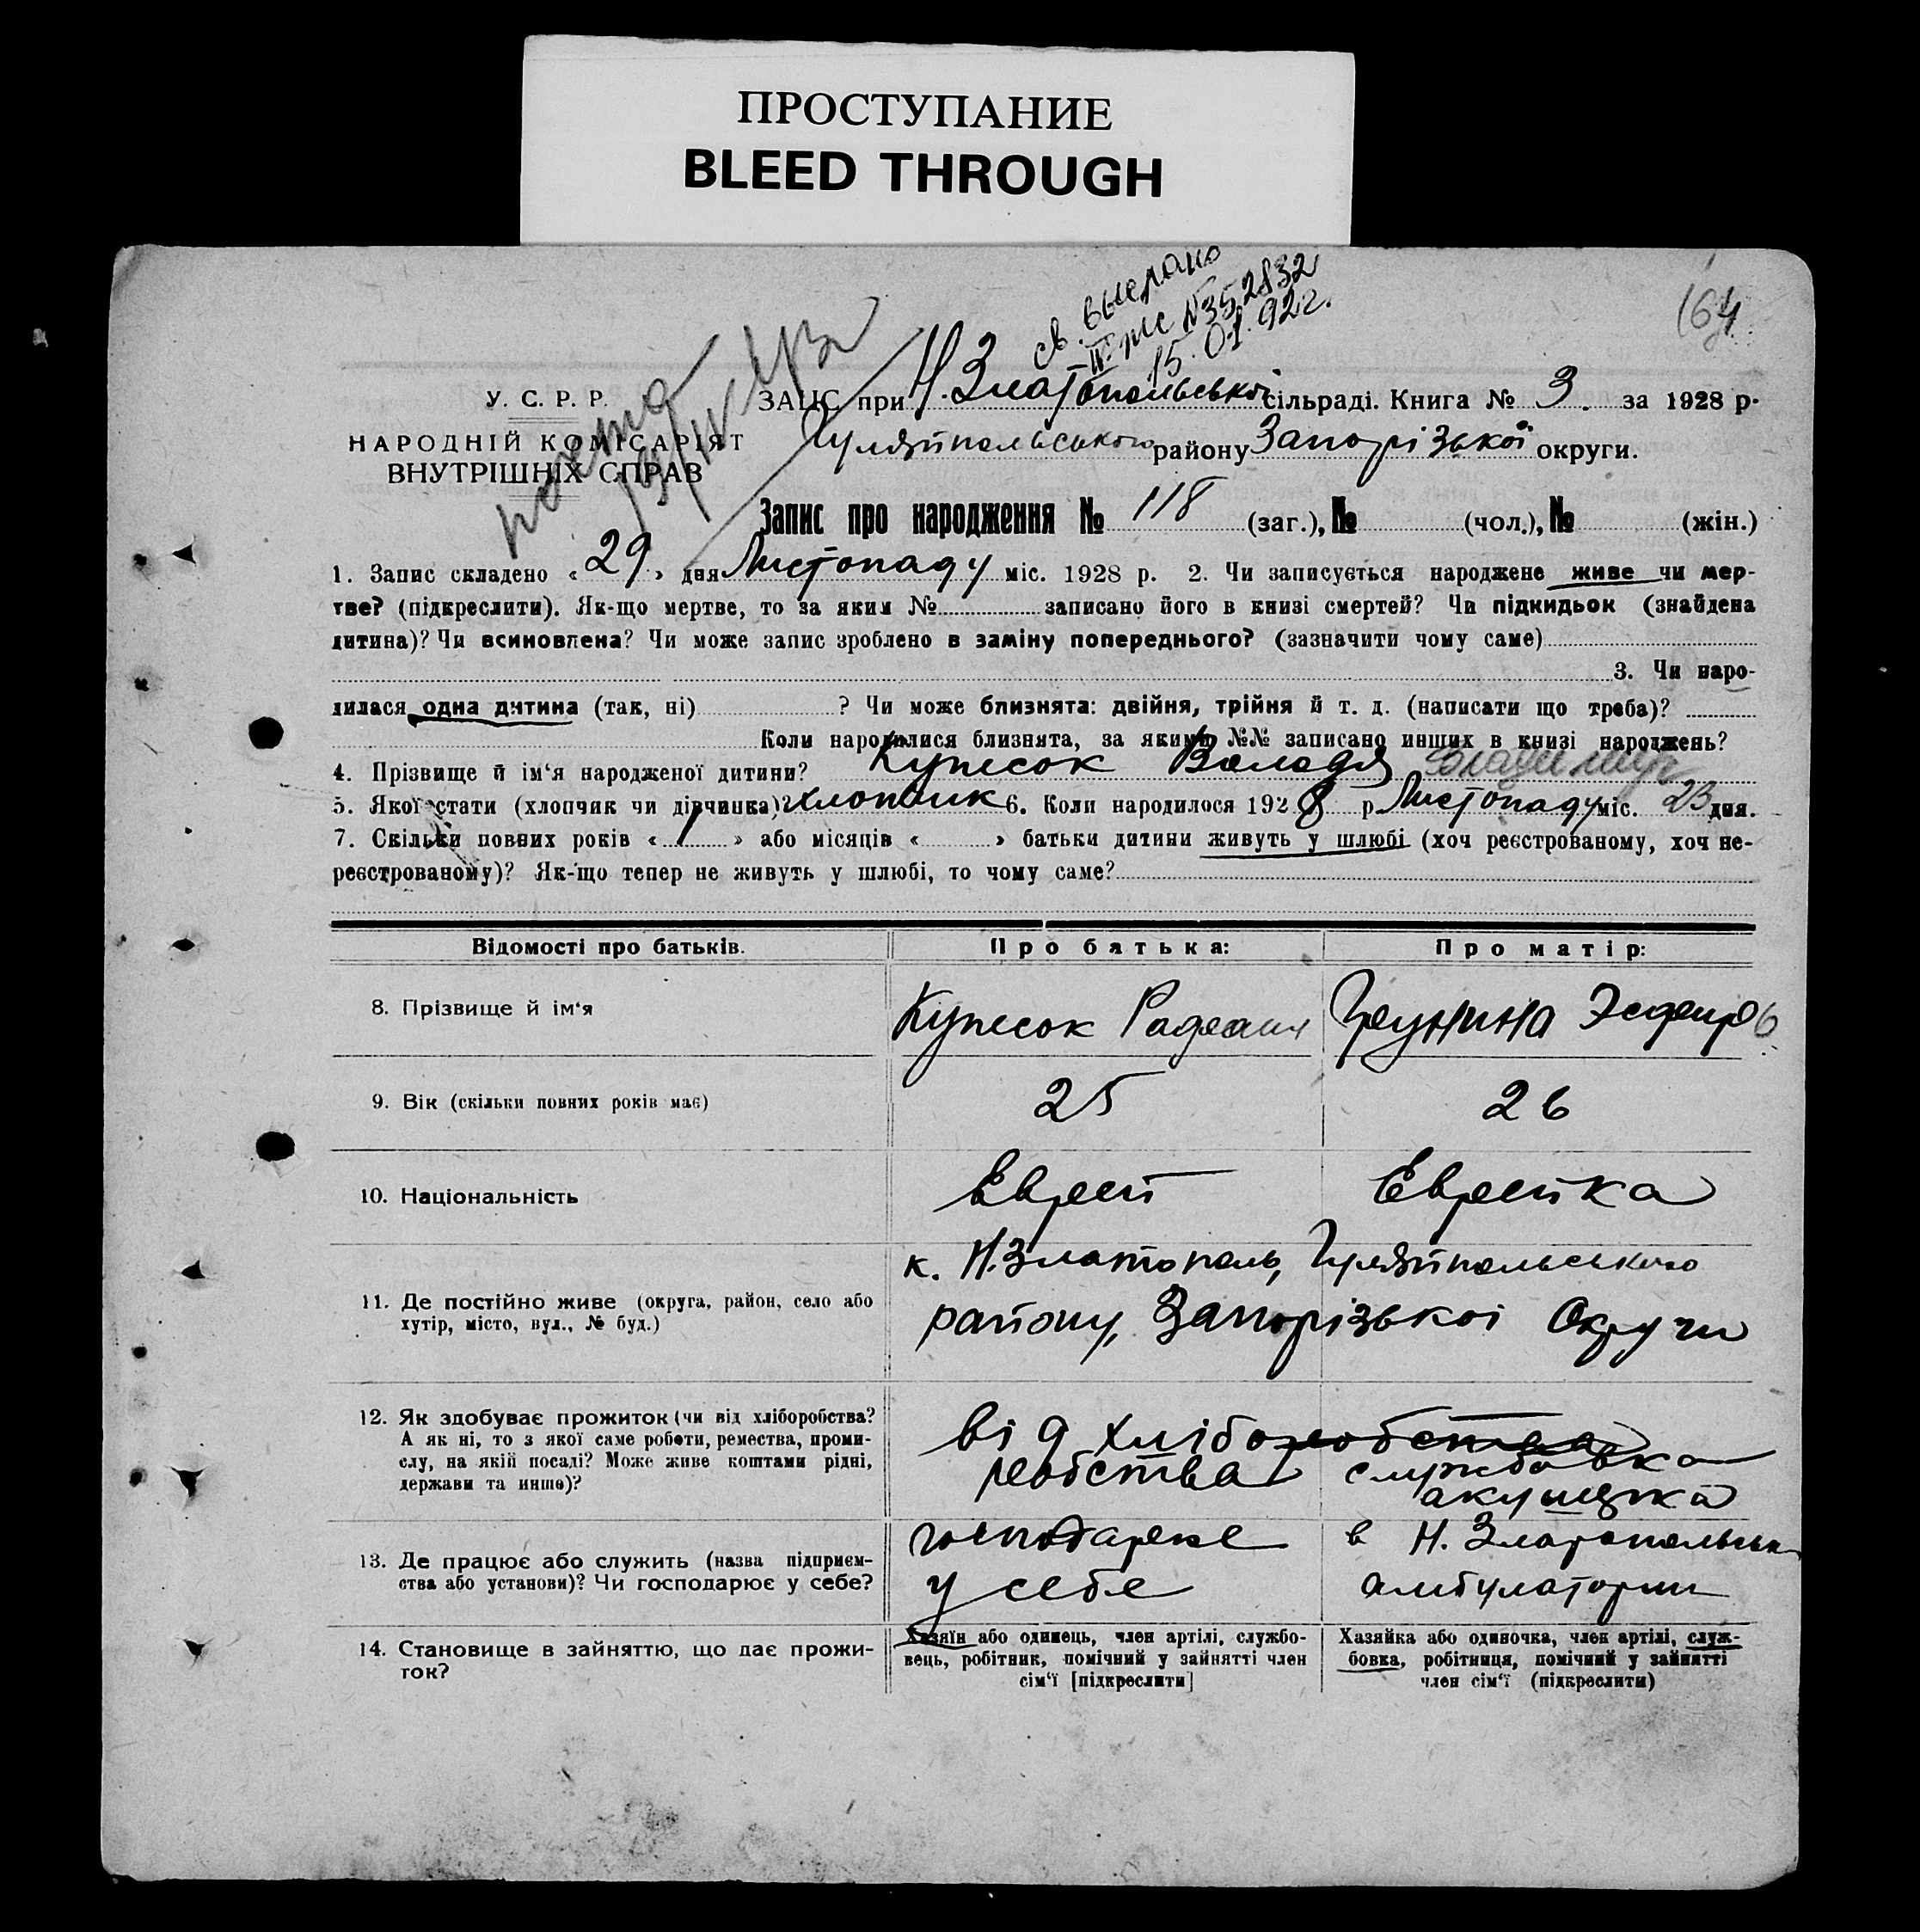 ПРОСТУПАНИЕ
BLEED THROUGH
св. выслано
№ 352832
15.01.92г.
164
У. С. Р. Р.
НАРОДНІЙ КОМІСАРІЯТ
ВНУТРІШНІХ СПРАВ
ЗАПС при Н. Златопольській сільраді. Книга № 3. за 1928 р.
Гуляйпольського району Запорізької округи.
Запис про народження № 118 (заг.), № (чол.), № (жін.)
1. Запис складено « 29 » дня Листопаду міс. 1928 р. 2. Чи записується народжене живе чи мер-
тве? (підкреслити). Як-що мертве, то за яким № записано його в книзі смертей? Чи підкидьок (знайдена
дитина)? Чи всиновлена? Чи може запис зроблено в заміну попереднього? (зазначити чому саме)
3. Чи наро-
дилася одна дитина (так, ні) ? Чи може близнята: двійня, трійня й т. д. (написати що треба)?
Коли народилися близнята, за якими №№ записано инших в книзі народжень?
4. Прізвище й ім'я народженої дитини? Купесок Володя Владимир
5. Якої стати (хлопчик чи дівчинка)? хлопчик 6. Коли народилося 1928 р. Листопаду міс. 23 дня.
7. Скільки повних років « 1 » або місяців « » батьки дитини живуть у шлюбі (хоч реєстрованому, хоч не-
реєстрованому)? Як-що тепер не живуть у шлюбі, то чому саме?
Відомості про батьків. Про батька: Про матір:
8. Прізвище й ім'я Купесок
9. Вік (скільки повних років має) 25 26
10. Національність Еврей Еврейка
11. Де постійно живе (округа, район, село або
хутір, місто, вул., № буд.)
к. Н. Златополь, Гуляйпольського
району, Запорізької Округи
12. Як здобуває прожиток (чи від хліборобства?
А як ні, то з якої саме роботи, ремества, проми-
слу, на якій посаді? Може живе коштами рідні,
держави та инше)?
від хліборобства
робства службовка
акушерка
13. Де працює або служить (назва підприєм-
ства або установи)? Чи господарює у себе?
господарює в Н. Златопольськ
у себе амбулатории
14. Становище в зайняттю, що дає прожи-
ток?
Хазяїн або одинець, член артілі, службо-
вець, робітник, помічний у зайнятті член
сім'ї [підкреслити]
Хазяйка або одиночка, член артілі, служ-
бовка, робітниця, помічний у зайнятті
член сім'ї (підкреслити)